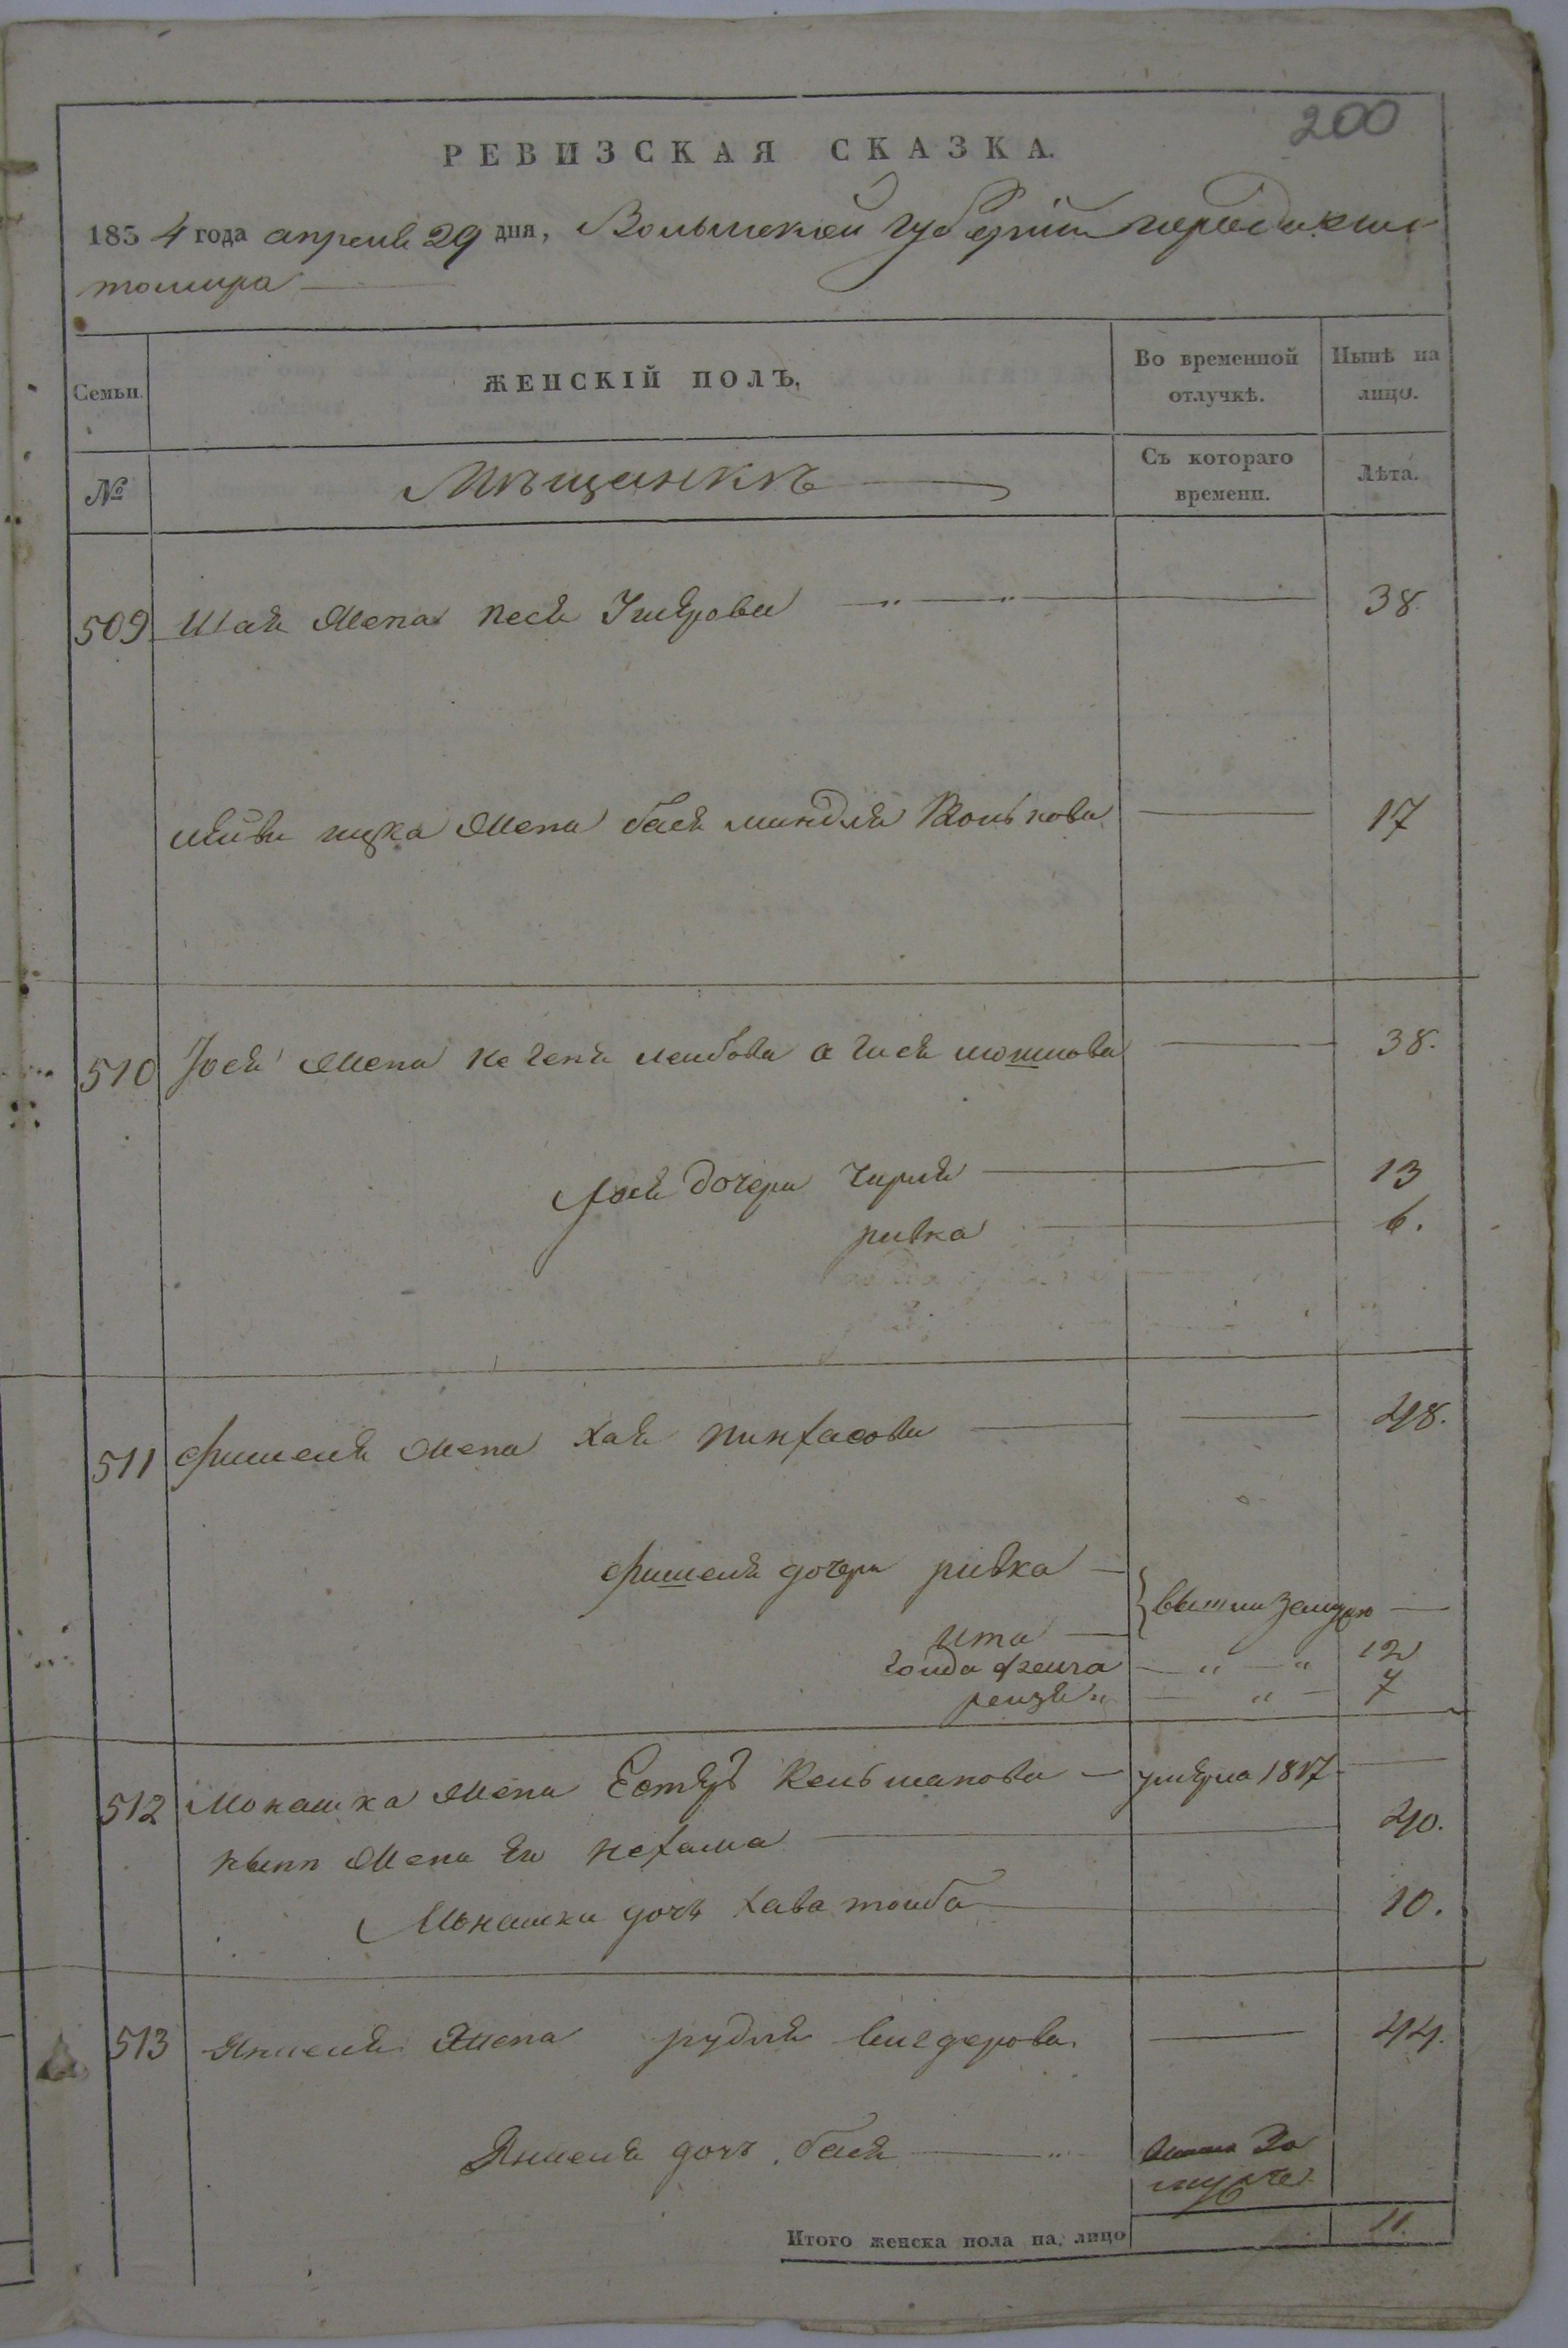 200
РЕВИЗСКАЯ СКАЗКА.
1854 года апреля 29 дня, Волынской губернии города жи
томира
Семьи.
ЖЕНСКІЙ ПОЛЪ.
Во временной отлучкѣ.
Нынѣ на лицо.
№
Мѣщанкѣ
Съ котораго времени.
Лѣта.
509 Шаи жена песя 38.
жена бася миндля 17
510 Іося жена лейбова а гися мошкова 38.
Іося дочери чирля 13
ривка 6.
511 фишеля жена хая пинхасова 48.
фишеля дочери ривка
ита вышли замужь
фейга " " 12
рейзя " " 7
512 Монашка жена Естеръ умерла 1847
жена его нехама 40.
Монашки дочь хава тойба 10.
513 Янкеля жена рудля вигдерова 44.
Янкеля дочь бася вышла за
мужъ
Итого женска пола на лицо 11.